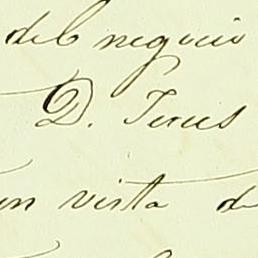 del negocio
D. Jesus
en vista de